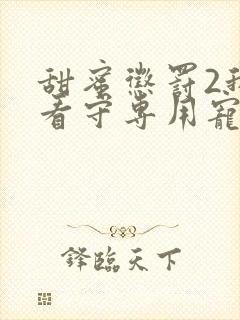 甜蜜懲罰2我
看守專用寵
鋒臨天下